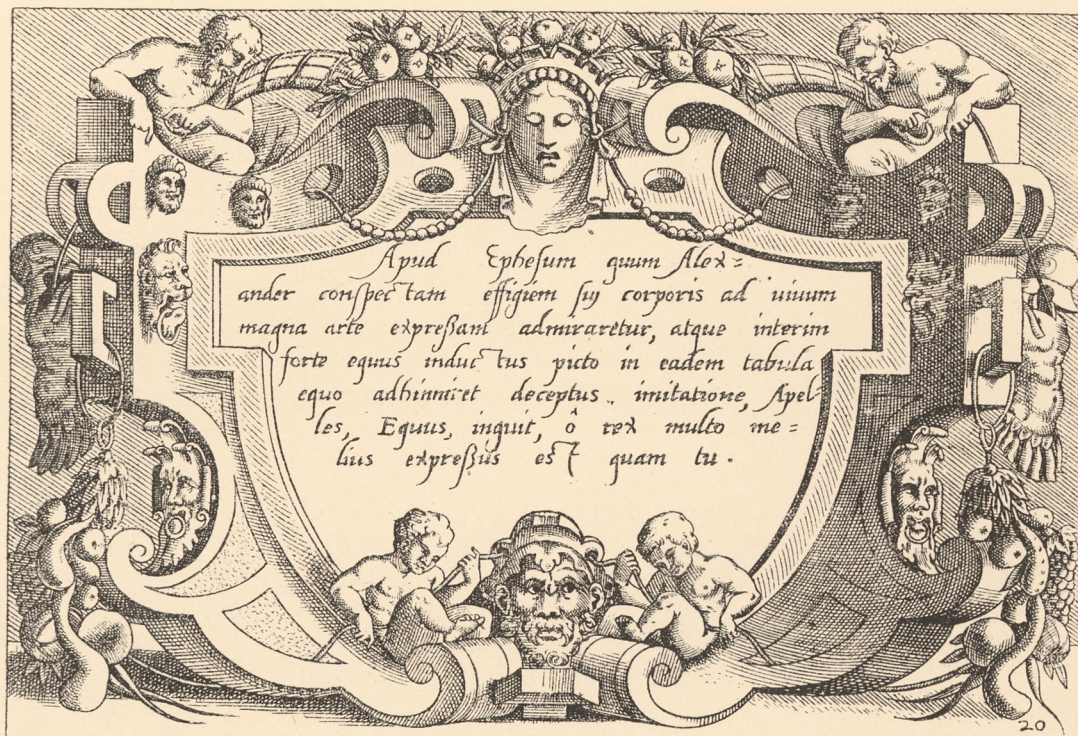 Apud Ephesum quum Alex=
ander conspectam effigiem sui corporis ad uiuum
magna arte expressam admiraretur, atque interim
forte equus inductus picto in eadem tabula
equo adhinniret deceptus imitatione, Apel-
les, Equus, inquit, ô rex multo me=
lius expressus est quam tu.
20